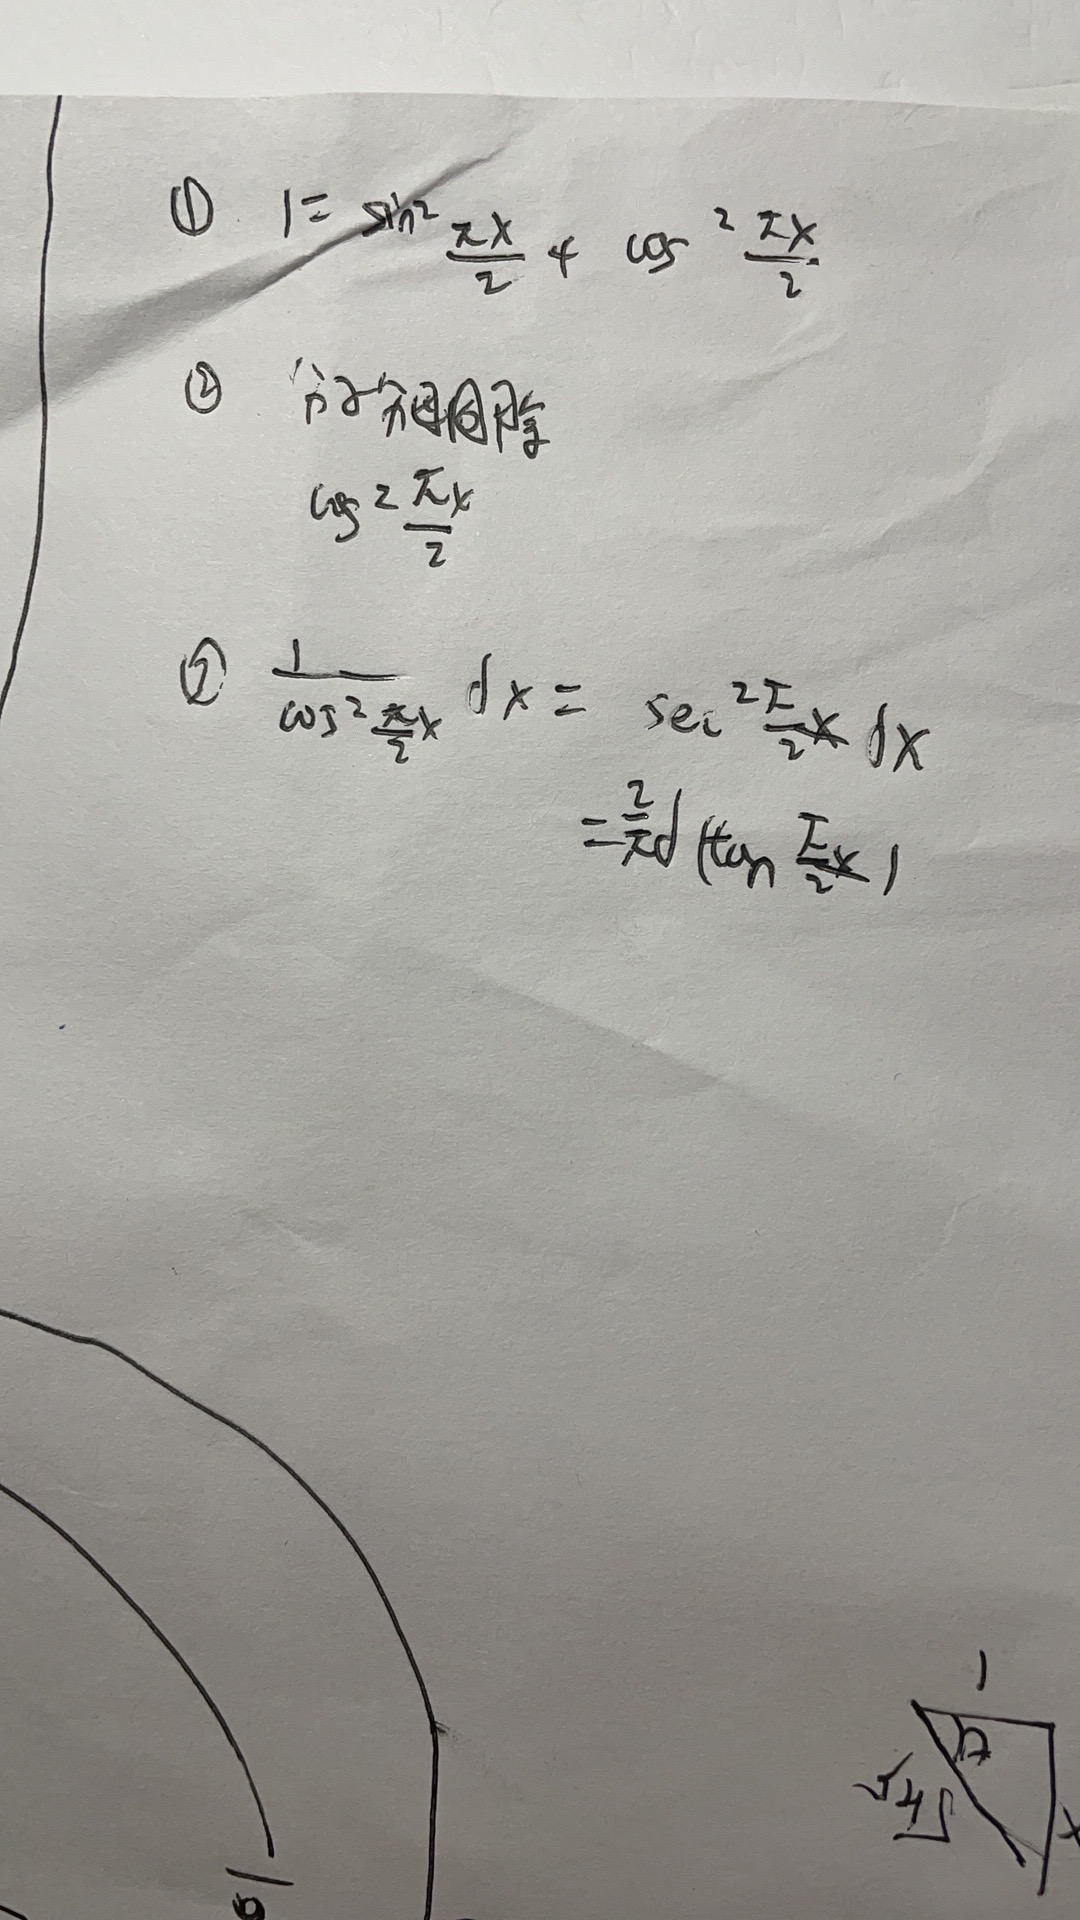 ① 1 = sin² πx/2 + cos² πx/2.
② 分子分母同除
cos² πx/2
③ 1/(cos² π/2 x) dx = sec² π/2 x dx
= 2/π d(tan π/2 x)
1
x